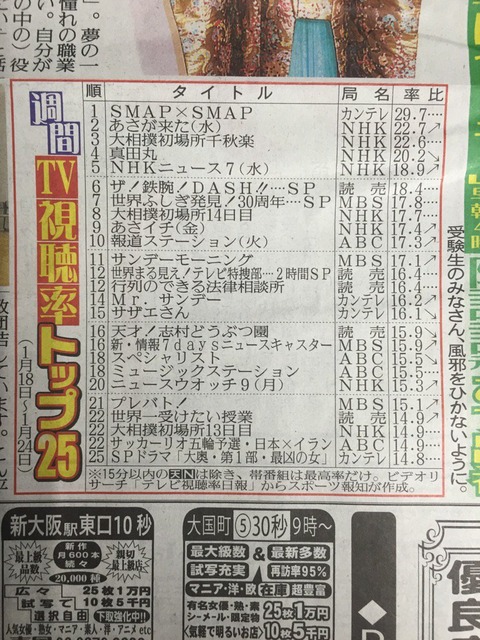 」。夢の一
憧れの職業
い。自分が
の中の）役
週間
TV視聴率トップ25
（1月18日〜1月24日）
順 タイトル 局名 率 比
1 SMAP×SMAP カンテレ 29.7…
2 あさが来た(水) NHK 22.7↗
3 大相撲初場所千秋楽 NHK 22.6…
4 真田丸 NHK 20.2↘
5 NHKニュース7(水) NHK 18.9↗
6 ザ！鉄腕！DASH!!…SP 読売 18.4…
7 世界ふしぎ発見！30周年…SP MBS 17.8…
8 大相撲初場所14日目 NHK 17.7…
9 あさイチ(金) NHK 17.4↗
10 報道ステーション(火) ABC 17.3↗
11 サンデーモーニング MBS 17.1↗
12 世界まる見え！テレビ特捜部…2時間SP 読売 16.4…
12 行列のできる法律相談所 読売 16.4…
14 Mr.サンデー カンテレ 16.2↗
15 サザエさん カンテレ 16.1↘
16 天才！志村どうぶつ園 読売 15.9↘
16 新・情報7daysニュースキャスター MBS 15.9↗
18 スペシャリスト ABC 15.5↘
18 ミュージックステーション ABC 15.5…
20 ニュースウオッチ9(月) NHK 15.3↗
21 プレバト！ MBS 15.1↗
22 世界一受けたい授業 読売 14.9↗
22 大相撲初場所13日目 NHK 14.9…
22 サッカーリオ五輪予選・日本×イラン ABC 14.9…
25 SPドラマ「大奥・第1部・最凶の女」 カンテレ 14.8…
※15分以内の天Nは除き、帯番組は最高率だけ。ビデオリ
サーチ「テレビ視聴率日報」からスポーツ報知が作成。
受験生のみなさん、風邪をひかないように。
新大阪駅東口10秒
最上級品数
新作月600本続々
20,000種
親切最上級店
広々 25枚1万円
試写で 10枚5千円
選択自由 下取強化中!!
人気女優・熟女・マニア・素人・洋・アニメetc
大国町⑤30秒9時〜
最大級数 & 最新多数
試写充実 再訪率95%
マニア・洋・欧在庫超豊富
有名女優・熟・素
シーメール・限定物
気軽で明るいお店
25枚1万円
10枚5千円
優良